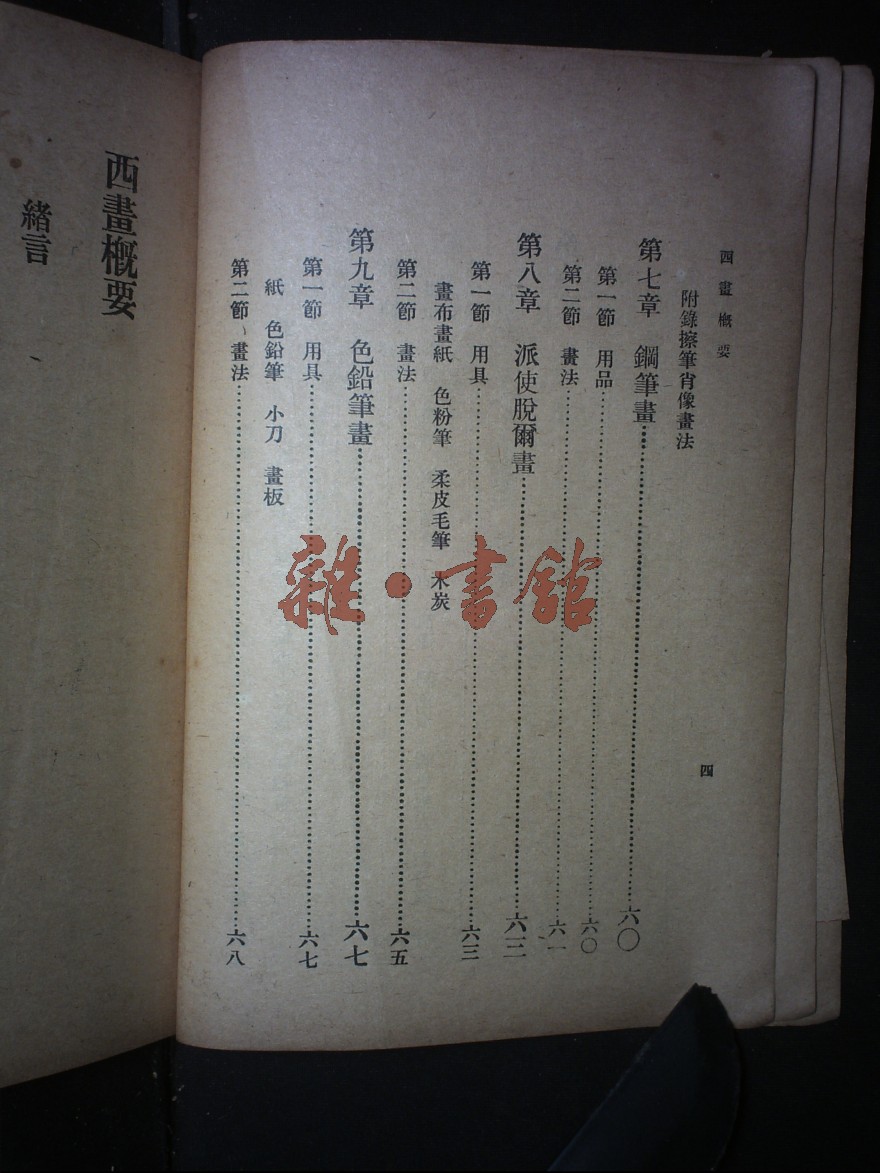 西畫概要
四
附錄擦筆肖像畫法
第七章　鋼筆畫……六〇
第一節　用品……六〇
第二節　畫法……六一
第八章　派使脫爾畫……六三
第一節　用具……六三
畫布畫紙　色粉筆　柔皮毛筆　木炭
第二節　畫法……六五
第九章　色鉛筆畫……六七
第一節　用具……六七
紙　色鉛筆　小刀　畫板
第二節　畫法……六八
西畫概要
緒言
雜·書館